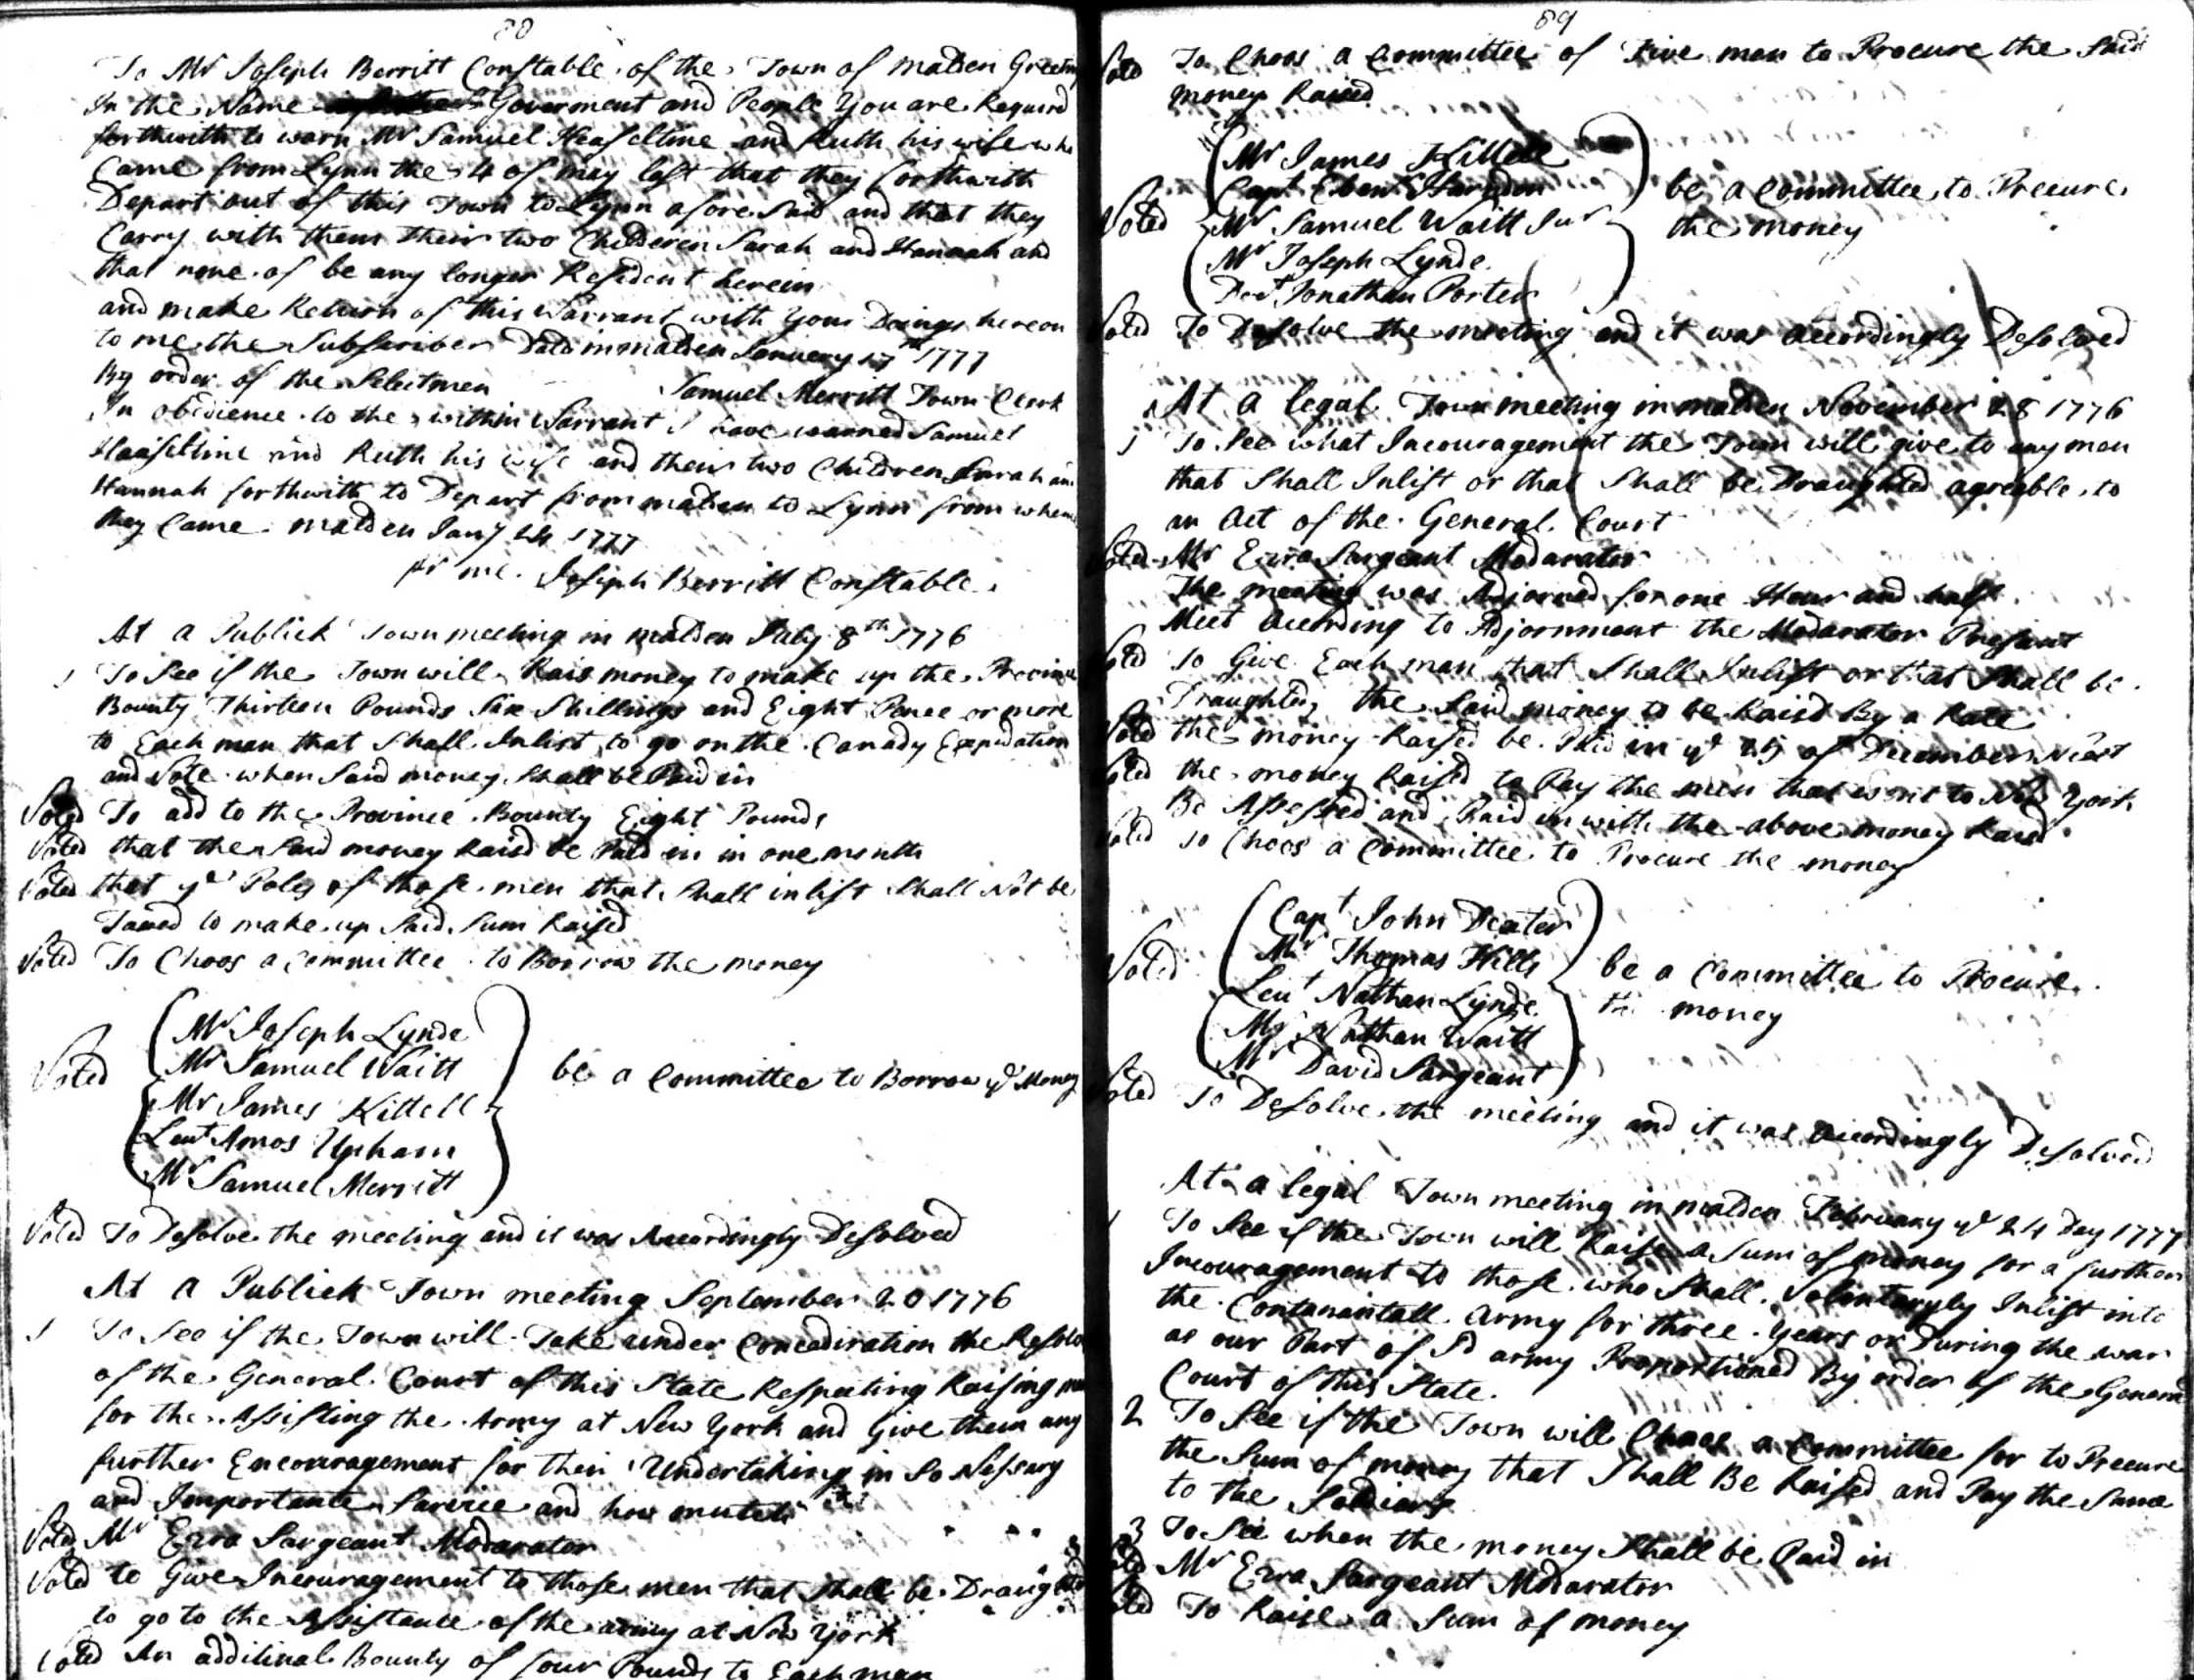 88
To Mr Joseph Berritt Constable of the Town of malden Greeting
In the Name Goverment and People You are Required
forthwith to warn Mr Samuel Heaseltine and Ruth his wife who
Came from Lynn the 4 of may last that they forthwith
Depart out of this Town to Lynn afore Said and that they
Carry with them their two Childeren Sarah and Hannah and
that none of be any longer Resident herein
and make Return of this Warrant with Your Doings hereon
to me the Subscriber Datd in malden Januery 17th 1777
By order of the Selectmen Samuel Merritt Town Clerk
In obedience to the within Warrant I have warned Samuel
Haaseltine and Ruth his wife and their two Children Sarah and
Hannah forthwith to Depart from malden to Lynn from whence
they Came malden Janry 24 1777
pr me Joseph Berritt Constable
At a Publick Town meeting in malden July 8th 1776
1 To See if the Town will Rais money to make up the Province
Bounty Thirteen Pounds Six Shillings and Eight Pence or more
to Each man that Shall Inlist to go on the Canady Expedation
and Vote when Said money Shall be Paid in
Voted To add to the Province Bounty Eight Pounds
Voted that the Said money Raisd be Paid in in one month
Voted that ye Poles of those men that Shall inlist Shall Not be
Taxed to make up Said Sum Raised
Voted To Choos a Committee to Borrow the money
Mr Joseph Lynde
Mr Samuel Waitt
Voted be a Committee to Borrow ye Money
Mr James Kittell
Leut Amos Upham
Mr Samuel Merritt
Voted To Desolve the meeting and it was Accordingly Desolved
At a Publick Town meeting September 20 1776
1 To See if the Town will Take under Concediration the Resolve
of the General Court of this State Respecting Raising
for the Assisting the Army at New York and Give them any
further Encouragement for their Undertaking in So Nessary
and Importante Service and how mutch
Voted Mr Ezra Sargeant Modarator
Voted to Give Incouragement to those men that Shall be Draughted
to go to the Assistance of the army at New York
Voted An additinal Bounty of four Pounds to Each man
89
Voted To Choos a Committee of Five men to Procure the Said
money Raised
Mr James Kittell
Capt Eben Harnden
Voted Mr Samuel Waitt Jur be a Committee to Precure
the money
Mr Joseph Lynde
Dot Jonathan Porter
Voted To Desolve the meeting and it was Accordingly Desolved
At a legal Town meeting in malden November 28 1776
1 To See what Incouragement the Town will give to any men
that Shall Inlist or that Shall be Draughted agreable to
an Act of the General Court
Voted Mr Ezra Sargeant Modarator
The meeting was Adjorned for one Hour and half
Meet According to Adjornment the Modarator Present
Voted To Give Each man that Shall Inlist or that Shall be
Draughted, the Said money to be Raisd By a Rate
Voted the money Raised be Paid in ye 25 of December Next
Voted the money Raised to Pay the men that went to New York
Be Assessed and Paid in with the above money Raisd
Voted To Choos a Committee to Procure the money
Capt John Dexter
Mr Thomas Hills
Voted Leut Nathan Lynde be a Committee to Procure
the money
Mr Nathan Waitt
Mr David Sargeant
Voted To Desolve the meeting and it was Accordingly Desolved
At a legal Town meeting in malden February ye 24 Day 1777
1 To See if the Town will Raise a Sum of money for a further
Incouragement to those who Shall Voluntaryly Inlist into
the Contanantall Army for three Years or During the war
as our Part of Sd army Proportioned By order of the General
Court of this State.
2 To See if the Town will Choos a Committee for to Precure
the Sum of money that Shall Be Raised and Pay the Same
to the Soldiars
3 To See when the money Shall be Paid in
Voted Mr Ezra Sargeant Modarator
Voted To Raise a Sum of money